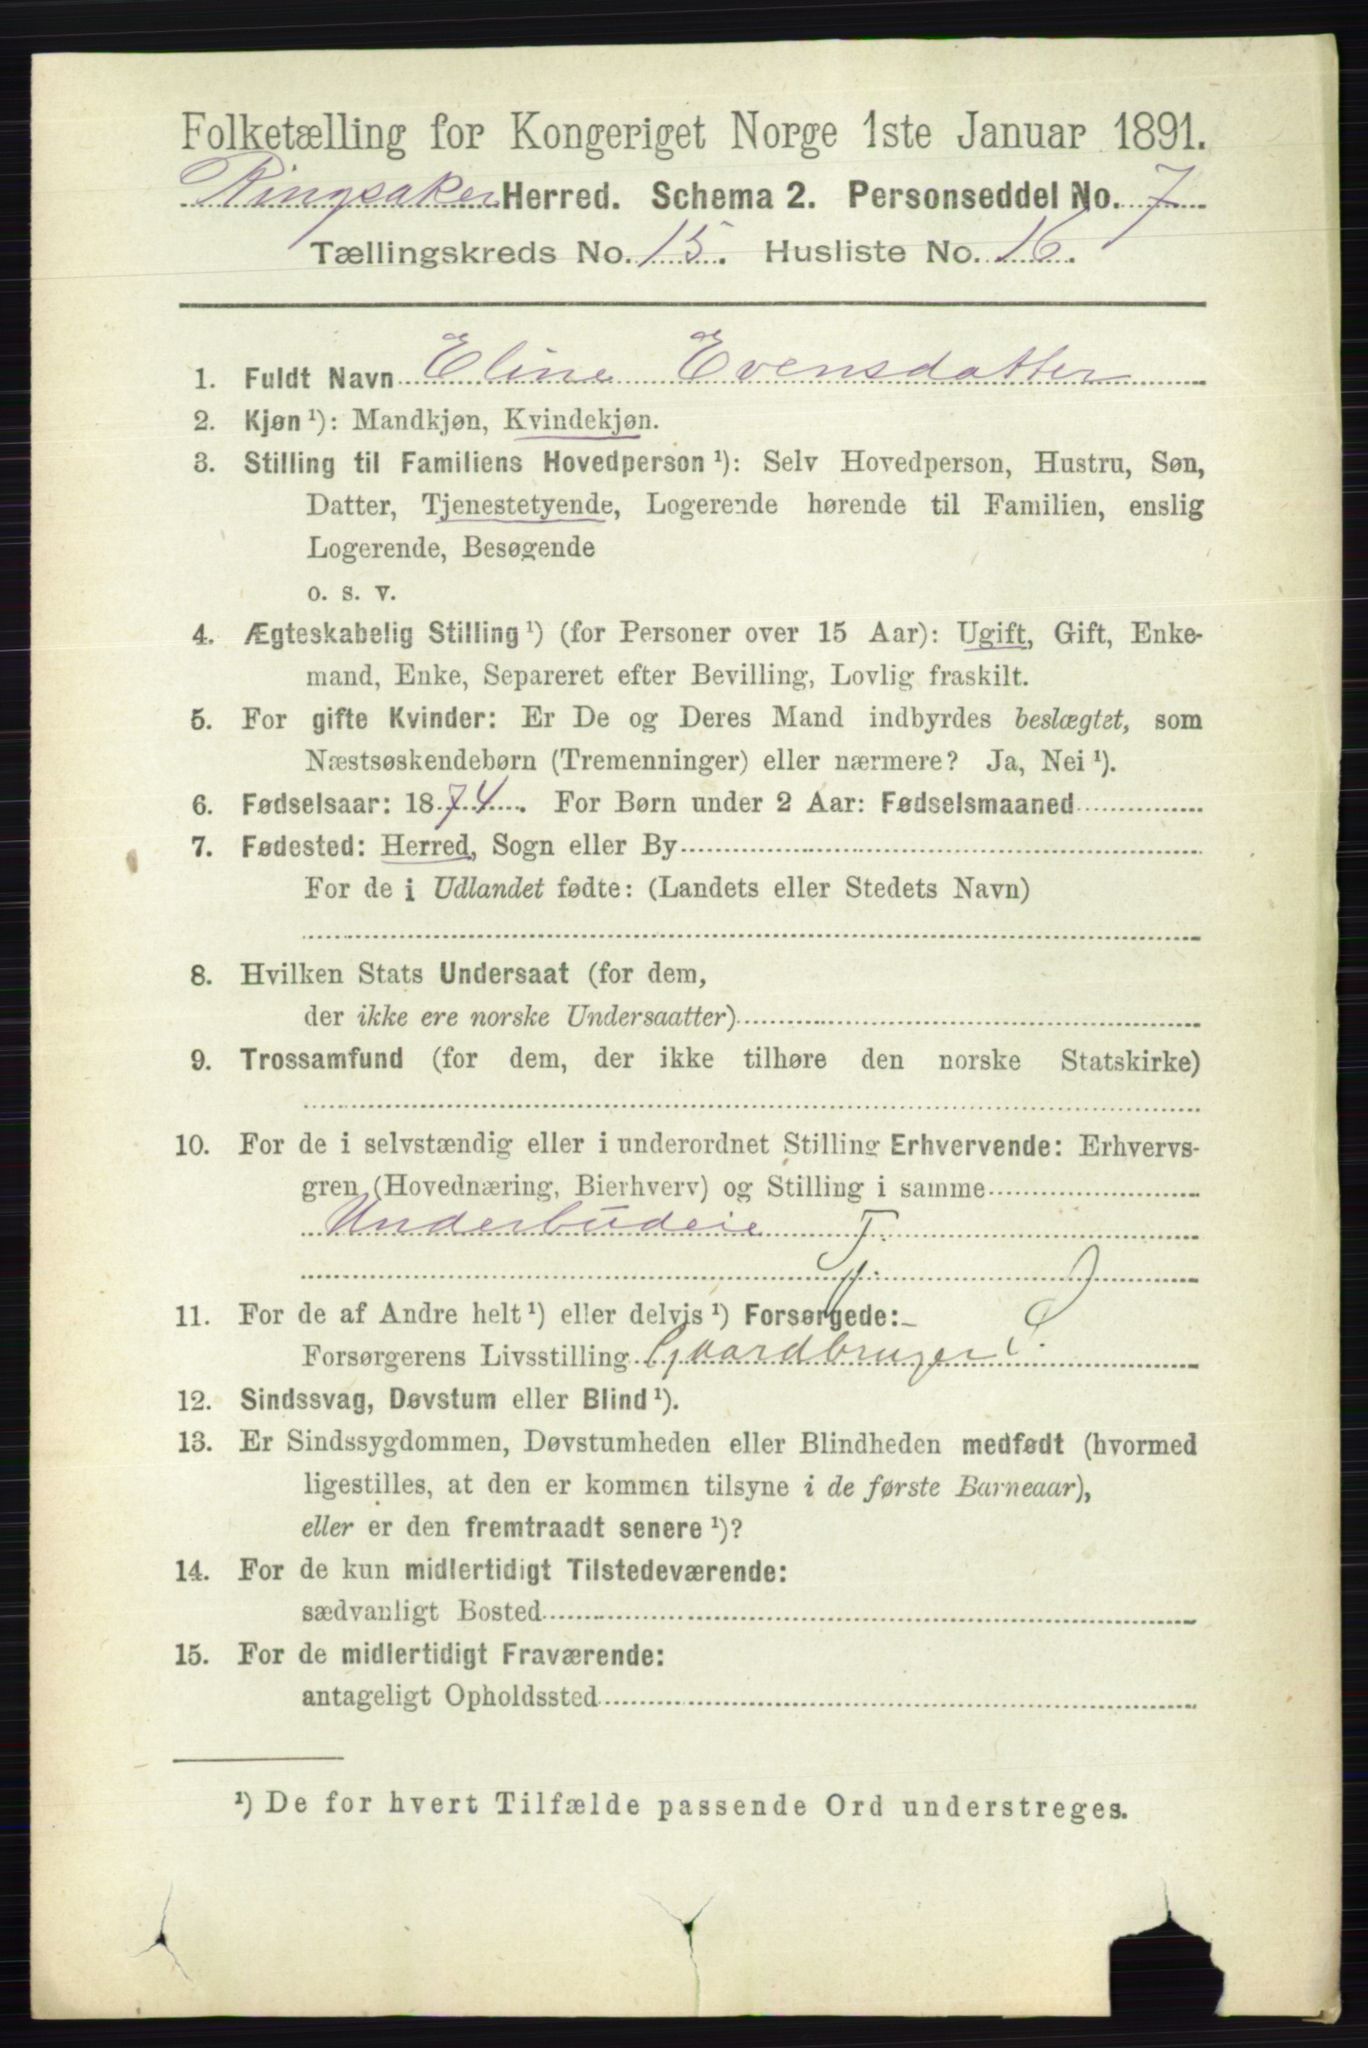 Folketælling for Kongeriget Norge 1ste Januar 1891.
Ringsaker Herred. Schema 2. Personseddel No. 7
Tællingskreds No. 15. Husliste No. 16.
1. Fuldt Navn Eline Evensdatter
2. Kjøn ¹): Mandkjøn, Kvindekjøn.
3. Stilling til Familiens Hovedperson ¹): Selv Hovedperson, Hustru, Søn,
Datter, Tjenestetyende, Logerende hørende til Familien, enslig
Logerende, Besøgende
o. s. v.
4. Ægteskabelig Stilling ¹) (for Personer over 15 Aar): Ugift, Gift, Enke-
mand, Enke, Separeret efter Bevilling, Lovlig fraskilt.
5. For gifte Kvinder: Er De og Deres Mand indbyrdes beslægtet, som
Næstsøskendebørn (Tremenninger) eller nærmere? Ja, Nei ¹).
6. Fødselsaar: 1874. For Børn under 2 Aar: Fødselsmaaned
7. Fødested: Herred, Sogn eller By
For de i Udlandet fødte: (Landets eller Stedets Navn)
8. Hvilken Stats Undersaat (for dem,
der ikke ere norske Undersaatter)
9. Trossamfund (for dem, der ikke tilhøre den norske Statskirke)
10. For de i selvstændig eller i underordnet Stilling Erhvervende: Erhvervs-
gren (Hovednæring, Bierhverv) og Stilling i samme
Underbudeie T.
11. For de af Andre helt ¹) eller delvis ¹) Forsørgede:
Forsørgerens Livsstilling Gaardbruger
12. Sindssvag, Døvstum eller Blind ¹).
13. Er Sindssygdommen, Døvstumheden eller Blindheden medfødt (hvormed
ligestilles, at den er kommen tilsyne i de første Barneaar),
eller er den fremtraadt senere ¹)?
14. For de kun midlertidigt Tilstedeværende:
sædvanligt Bosted
15. For de midlertidigt Fraværende:
antageligt Opholdssted
¹) De for hvert Tilfælde passende Ord understreges.